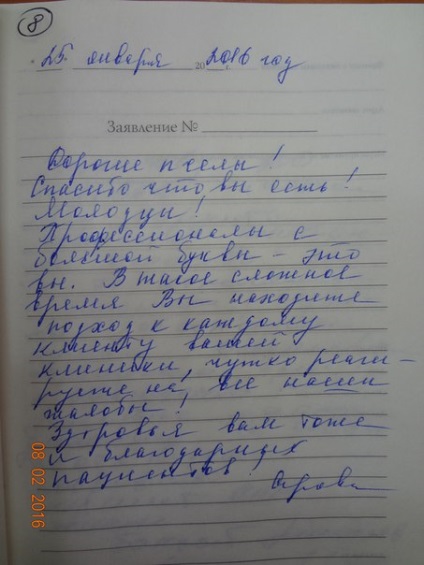 8
25 января 20 2016 год
Заявление №
Дорогие пчелы!
Спасибо что вы есть!
Молодцы!
Профессионалы с
большой буквы - это
вы. В такое сложное
время Вы находите
подход к каждому
клиенту вашей
клиники, чутко реаги-
руете на все наши
жалобы!
Здоровья вам тоже
и благодарных
пациентов!
08 02 2016